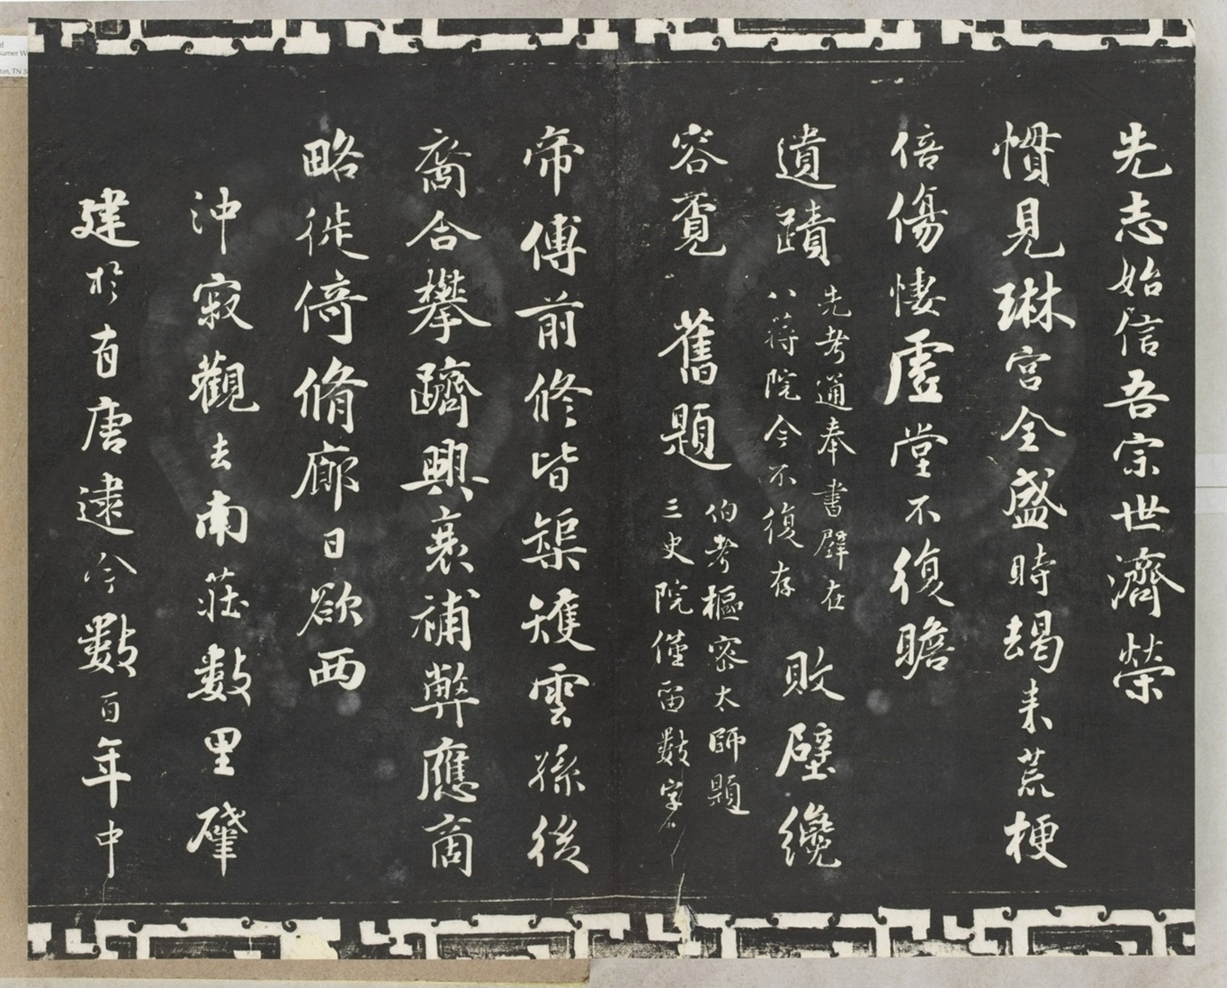 先志始信吾宗世濟榮
慣見琳宮全盛時朅来荒梗
倍傷悽虛堂不復瞻
遺蹟
先考通奉書壁在
八蒋院今不復存
敗壁纔
容覔舊題
伯考樞密太師題
三史院僅留數字
帝傅前修皆榘矱雲孫後
裔合攀躋興衰補弊應商
略徙倚脩廊日欲西
沖寂觀去南莊數里肈
建於有唐逮今數百年中